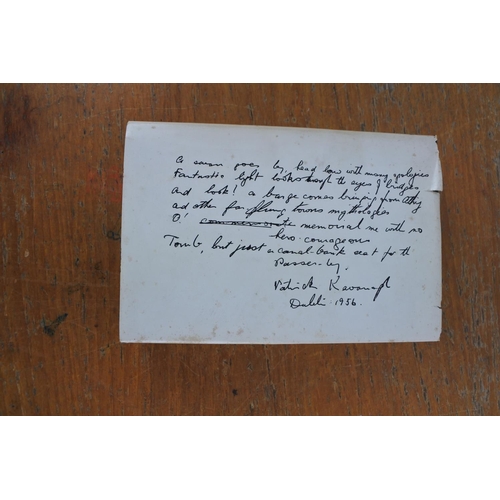 A swan goes by head low with many apologies
Fantastic light looks through the eyes of bridges
And look! a barge comes bringing from Athy
and other far-flung towns mythologies
O! commemorate memorial me with no
hero-courageous
Tomb, but just a canal-bank seat for the
Passer-by.
Patrick Kavanagh
Dublin. 1956.